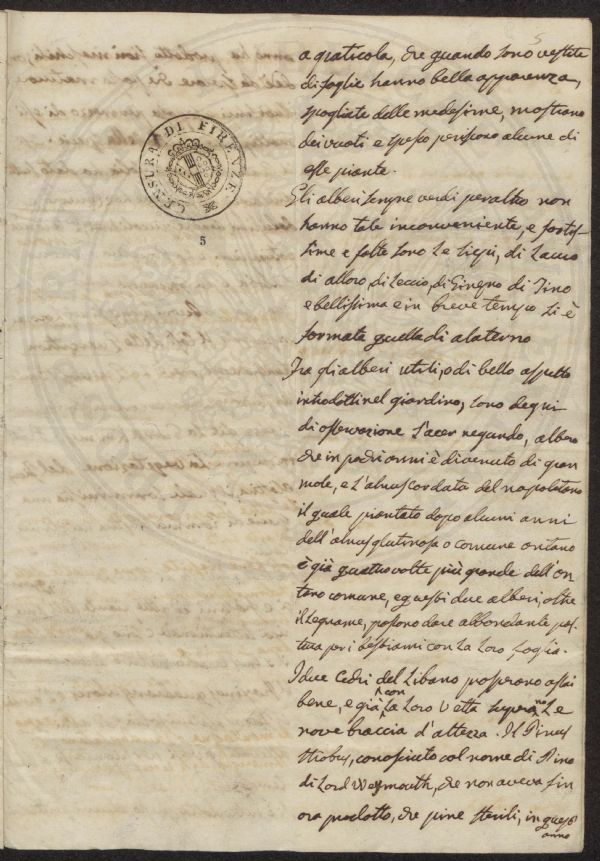 5
a graticola, che quando sono vestite
di foglie hanno bella apparenza,
spogliate delle medesime, mostrano
dei vuoti e spesso periscono alcune di
esse piante.
CENSURA DI FIRENZE
5
Gli alberi sempre verdi peraltro non
hanno tale inconveniente, e fortis-
sime e folte sono le siepi, di Lauro
di alloro, di Leccio, di Ginepro di Tino
e bellissima e in breve tempo si è
formata quella di alaterno
Fra gli alberi utili, o di bello aspetto
introdotti nel giardino, sono degni
di osservazione l'acer negundo, albero
che in pochi anni è divenuto di gran
mole, e l'alnus cordata del napolitano
il quale piantato dopo alcuni anni
dell'alnus glutinosa o comune ontano
è già quattro volte più grande dell'on
tano comune, e questi due alberi, oltre
il legname, possono dare abbondante pas-
tura per i bestiami con la loro foglia.
I due Cedri del Libano prosperano assai
bene, e già con la loro vetta superano le
nove braccia d'altezza. Il Pinus
strobus, conosciuto col nome di Pino
di Lord Waymouth, che non aveva fin
ora prodotto, che pine sterili, in quest'
anno